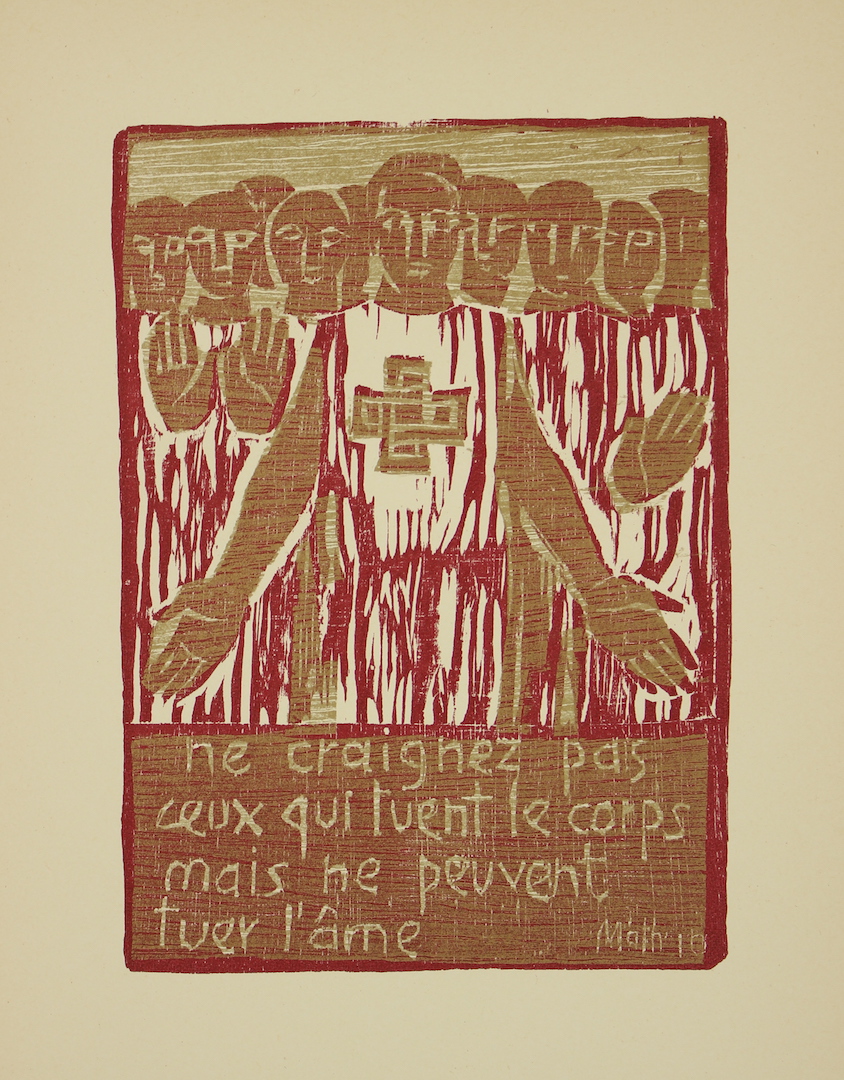 ne craignez pas
ceux qui tuent le corps
mais ne peuvent
tuer l'âme
Math 10